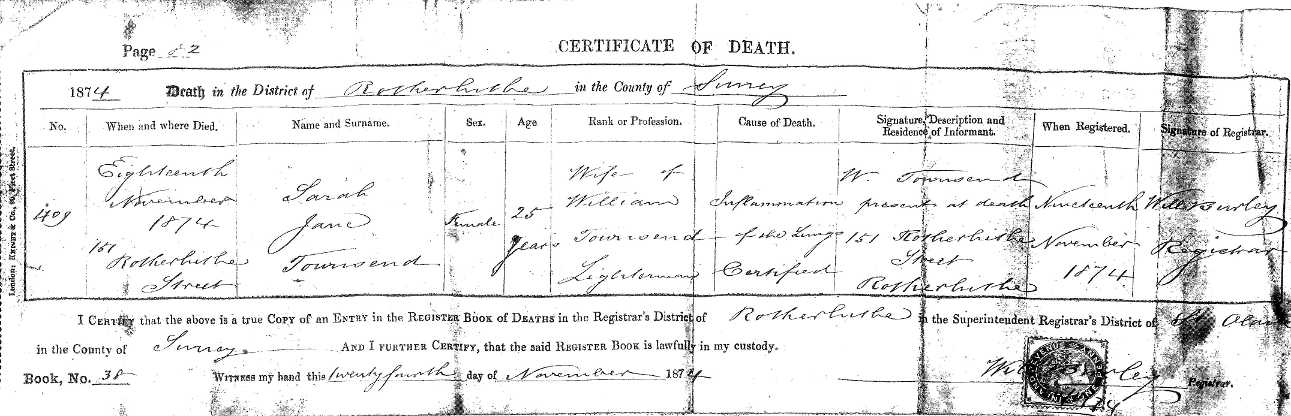 CERTIFICATE OF DEATH.
Page 82
1874 Death in the District of Rotherhithe in the County of Surrey
No. When and where Died. Name and Surname. Sex. Age Rank or Profession. Cause of Death. Signature, Description and Residence of Informant. When Registered. Signature of Registrar.
409
Eighteenth
November
1874
151
Rotherhithe
Street
Sarah
Jane
Townsend
Female
25
years
Wife of
William
Townsend
Lighterman
Inflammation
of the Lungs
Certified
W. Townsend
present at death
151 Rotherhithe
Street
Rotherhithe
Nineteenth
November
1874
Registrar
I CERTIFY that the above is a true COPY of an ENTRY in the REGISTER BOOK OF DEATHS in the Registrar's District of Rotherhithe in the Superintendent Registrar's District of St Olave
in the County of Surrey AND I FURTHER CERTIFY, that the said REGISTER BOOK is lawfully in my custody.
Book, No. 38 WITNESS my hand this twenty fourth day of November 1874
Registrar.
London: